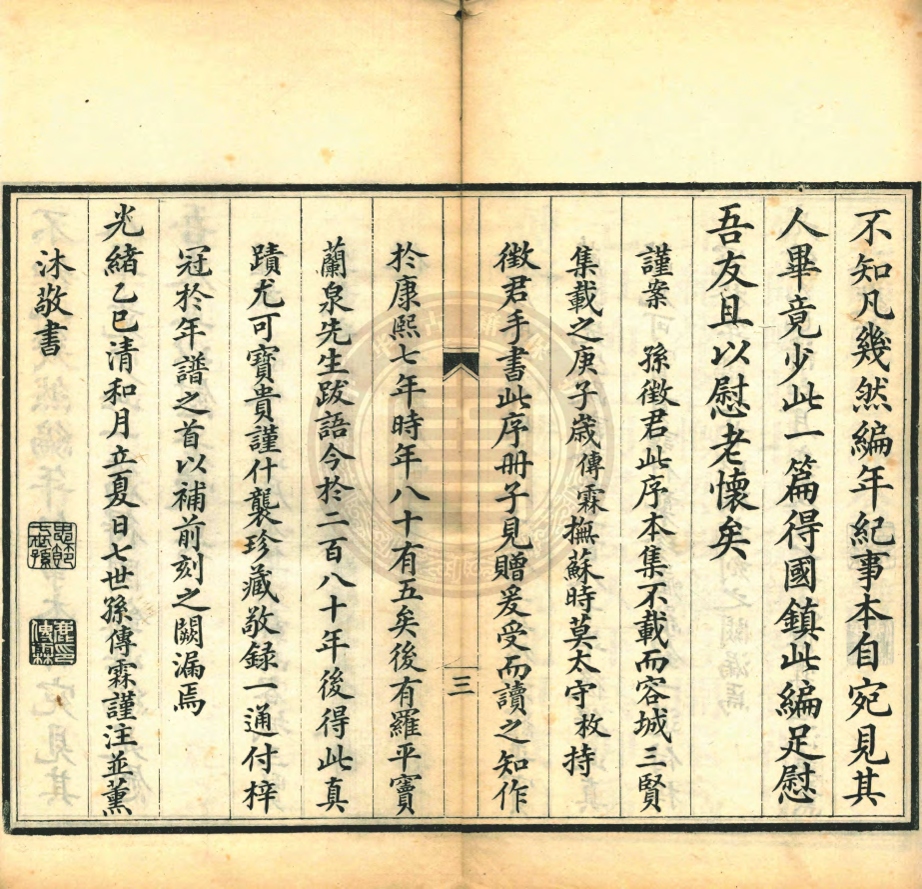 不知凡幾然編年紀事本自宛見其
人畢竟少此一篇得國鎮此編足慰
吾友且以慰老懷矣
謹案　孫徵君此序本集不載而容城三賢
集載之庚子歲傳霖撫蘇時莫太守枚持
徵君手書此序冊子見贈爰受而讀之知作
三
於康熙七年時年八十有五矣後有羅平竇
蘭泉先生跋語今於二百八十年後得此真
蹟尤可寶貴謹什襲珍藏敬録一通付梓
冠於年譜之首以補前刻之闕漏焉
光緒乙巳清和月立夏日七世孫傳霖謹注並薰
沐敬書
傳霖